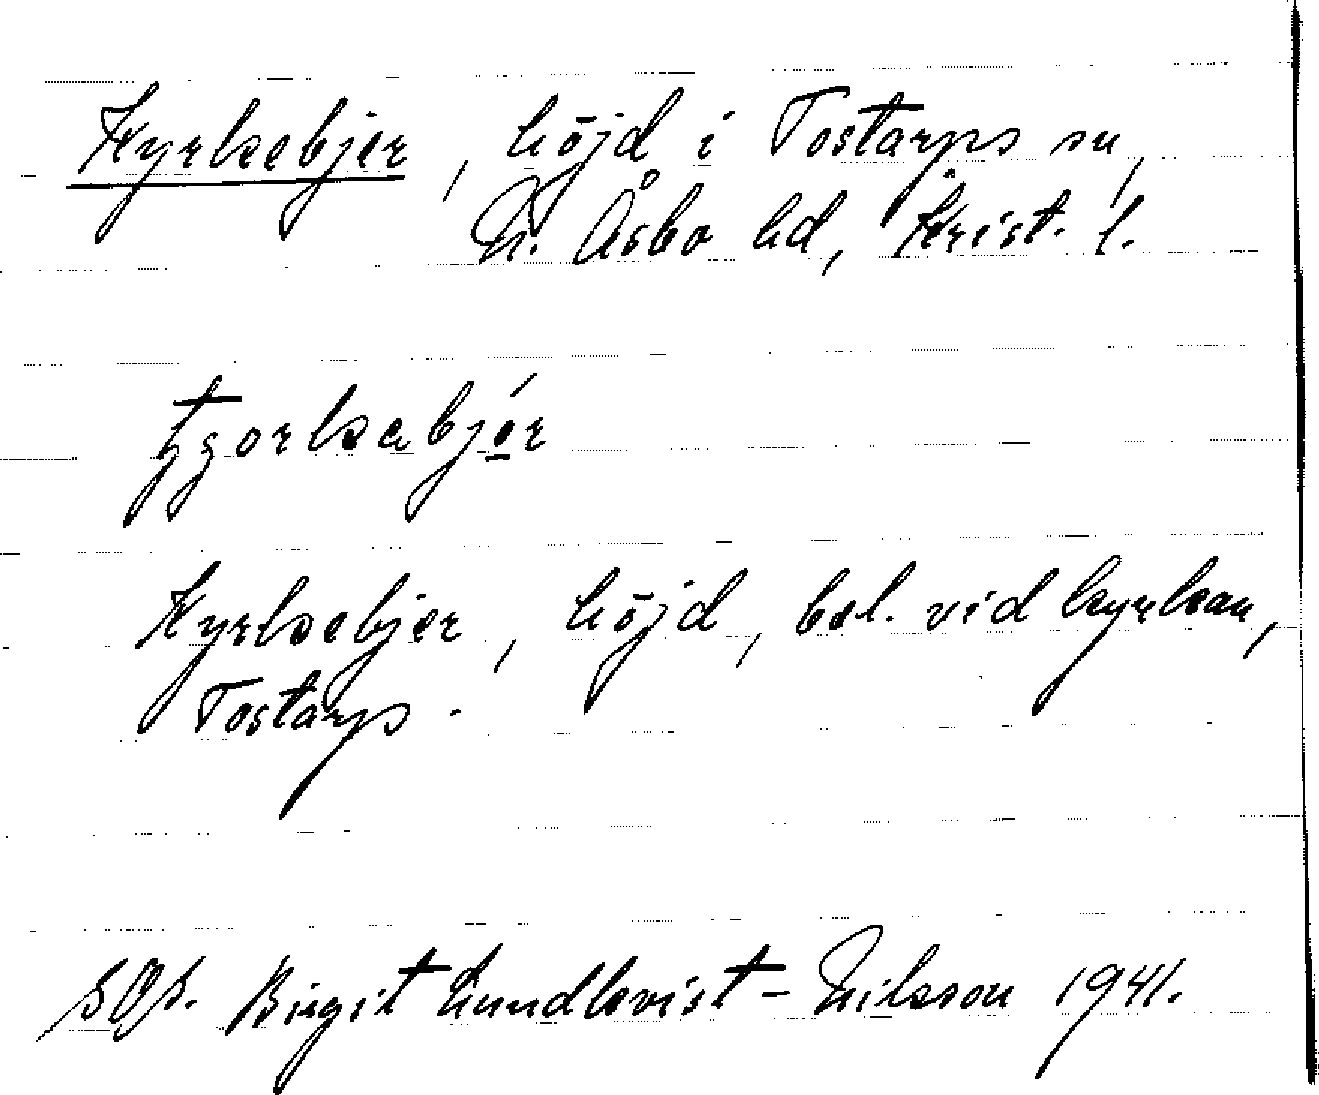 Kyrkebjer, höjd i Tostarps sn,
N. Åsbo hd, Krist. l.
Kyrkebjer, höjd, bel. vid kyrkan,
Tostarp.
SOA. Birgit Lundkvist-Nilsson 1941.